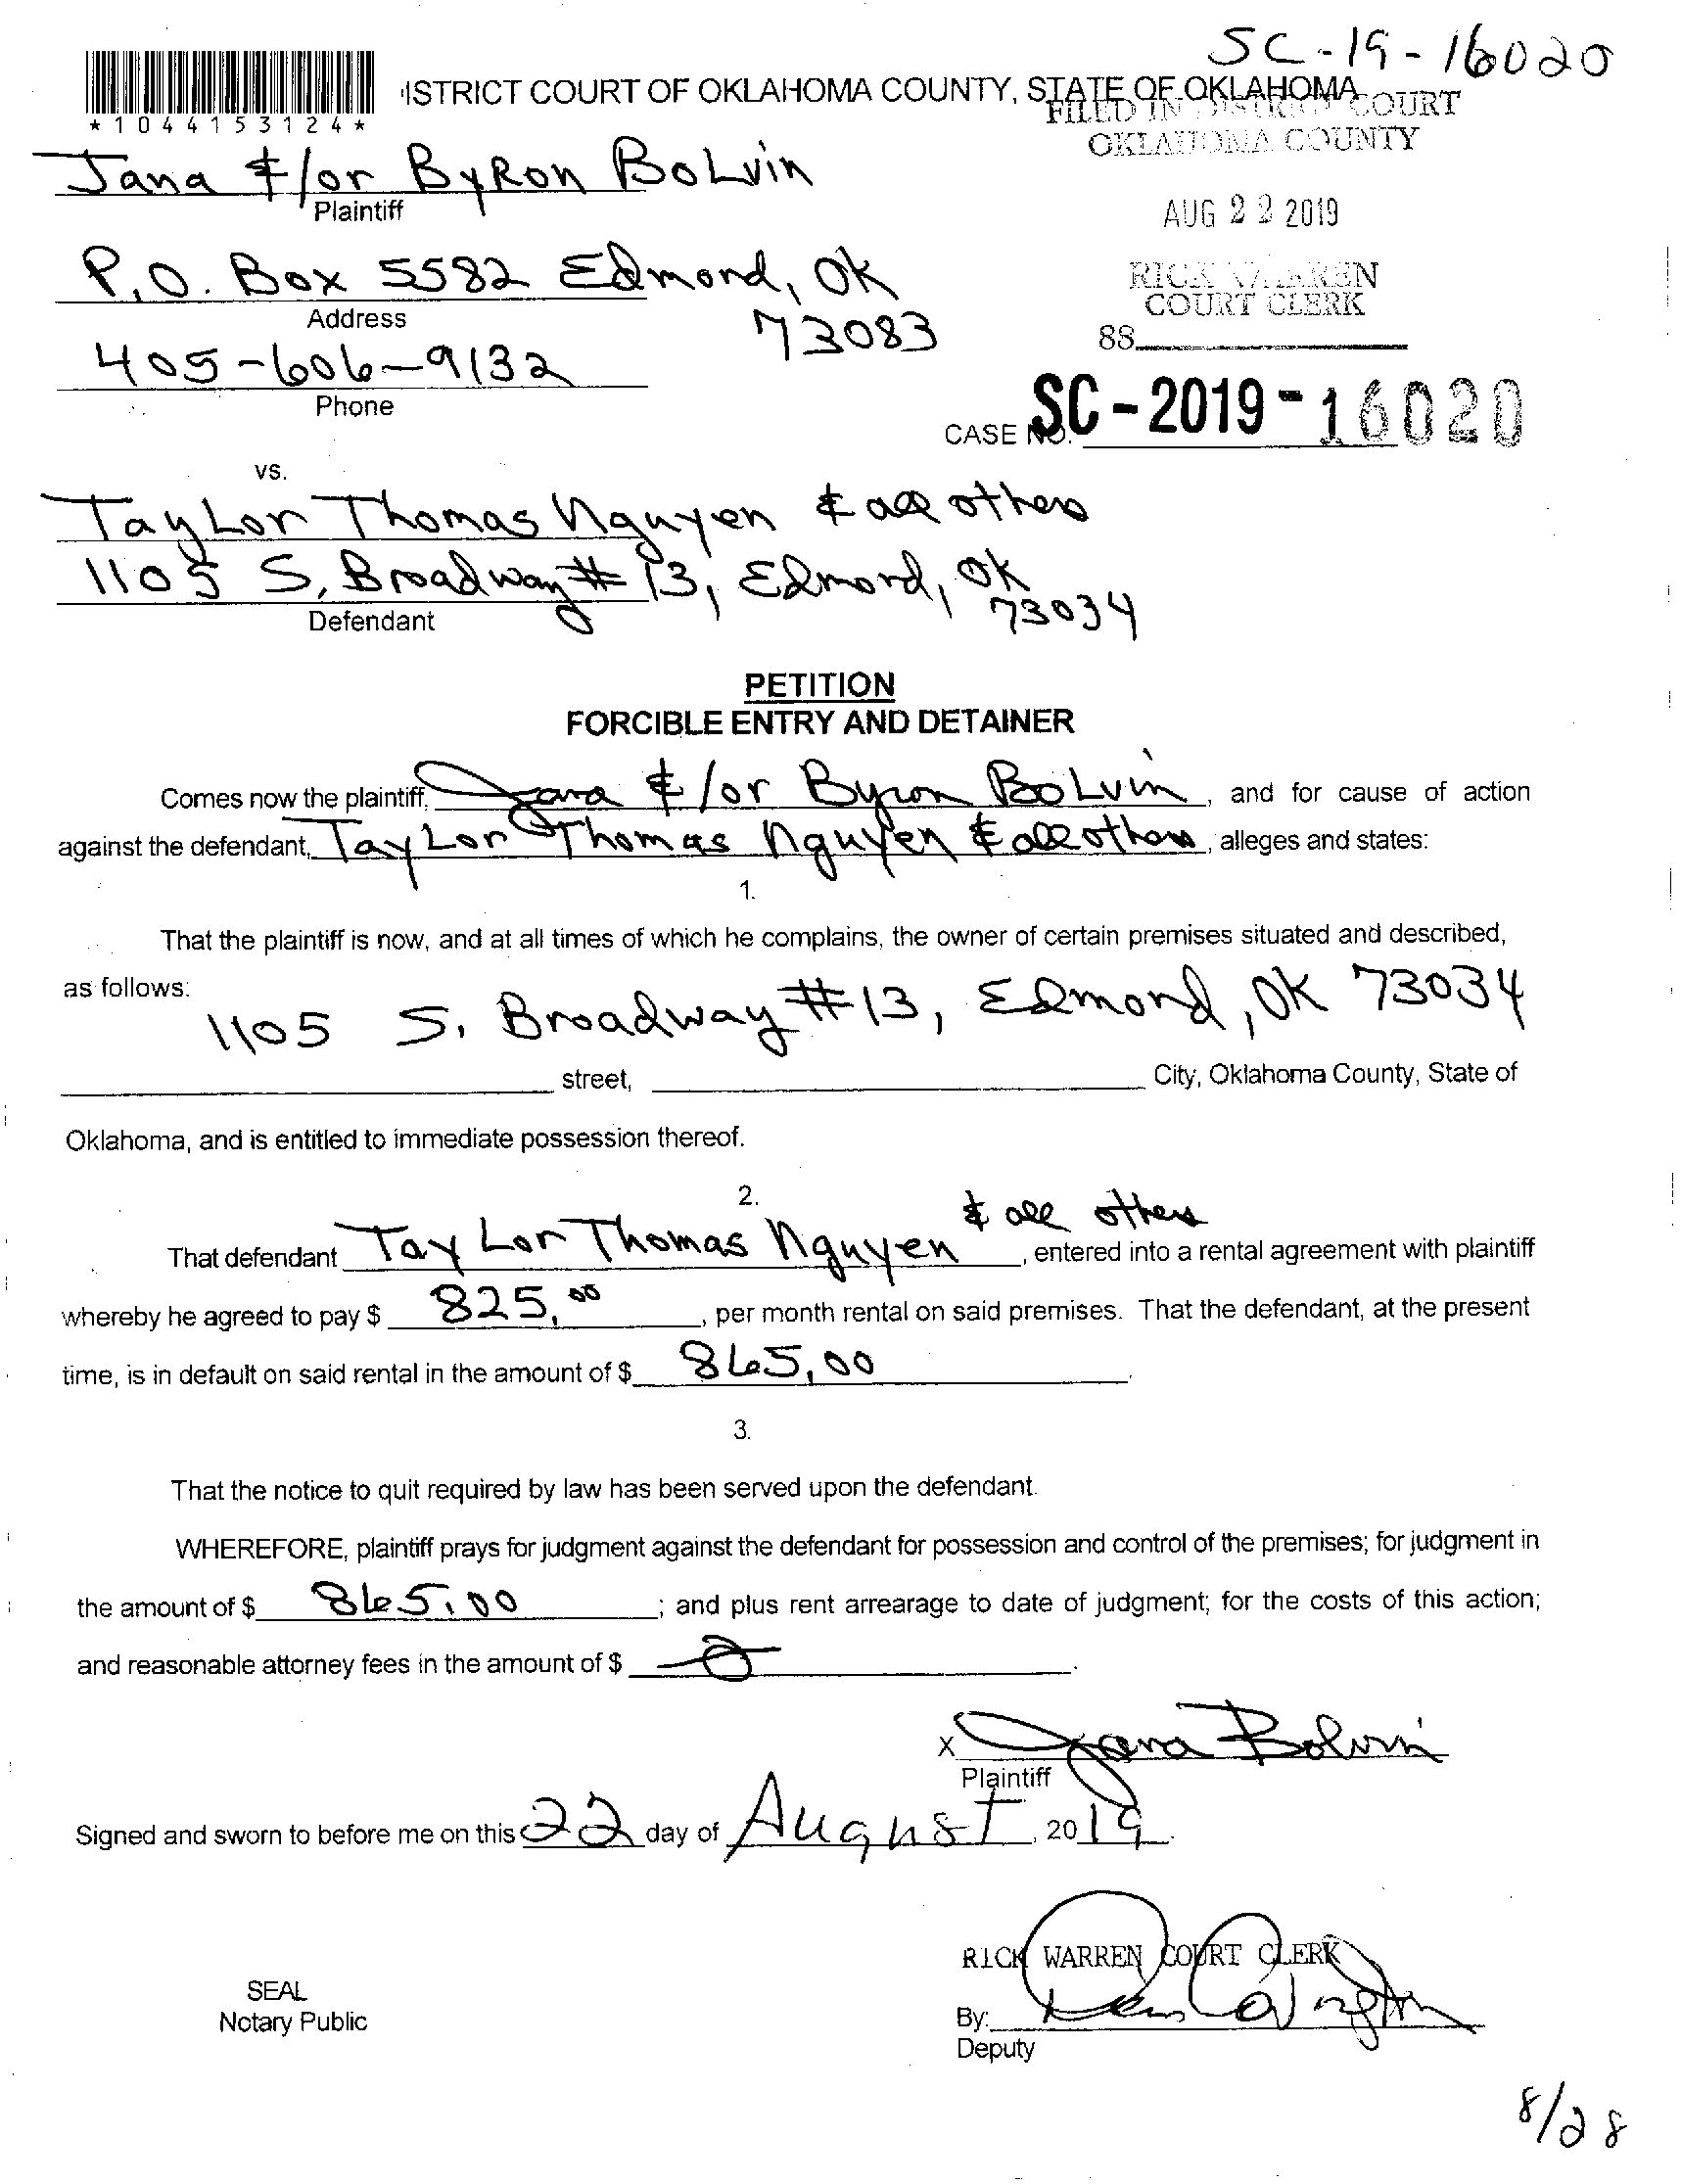 SC-19-16020
ISTRICT COURT OF OKLAHOMA COUNTY, STATE OF OKLAHOMA
FILED IN DISTRICT COURT
OKLAHOMA COUNTY
*1044153124*
Jana &/or Byron Bolvin
Plaintiff
AUG 22 2019
P.O. Box 5582 Edmond, OK
73083
Address
RICK WARREN
COURT CLERK
88
405-606-9132
Phone
CASE NO. SC-2019-16020
vs.
Taylor Thomas Nguyen & all others
1105 S. Broadway #13, Edmond, OK
73034
Defendant
PETITION
FORCIBLE ENTRY AND DETAINER
Comes now the plaintiff, Jana &/or Byron Bolvin, and for cause of action
against the defendant, Taylor Thomas Nguyen & all others, alleges and states:
1.
That the plaintiff is now, and at all times of which he complains, the owner of certain premises situated and described,
as follows:
1105 S. Broadway #13, Edmond, OK 73034
street, City, Oklahoma County, State of
Oklahoma, and is entitled to immediate possession thereof.
2.
That defendant Taylor Thomas Nguyen & all others, entered into a rental agreement with plaintiff
whereby he agreed to pay $ 825.00, per month rental on said premises. That the defendant, at the present
time, is in default on said rental in the amount of $ 865.00.
3.
That the notice to quit required by law has been served upon the defendant.
WHEREFORE, plaintiff prays for judgment against the defendant for possession and control of the premises; for judgment in
the amount of $ 865.00; and plus rent arrearage to date of judgment; for the costs of this action;
and reasonable attorney fees in the amount of $ 0.
X Jana Bolvin
Plaintiff
Signed and sworn to before me on this 22 day of August, 2019.
RICK WARREN COURT CLERK
SEAL
Notary Public
By:
Deputy
8/28